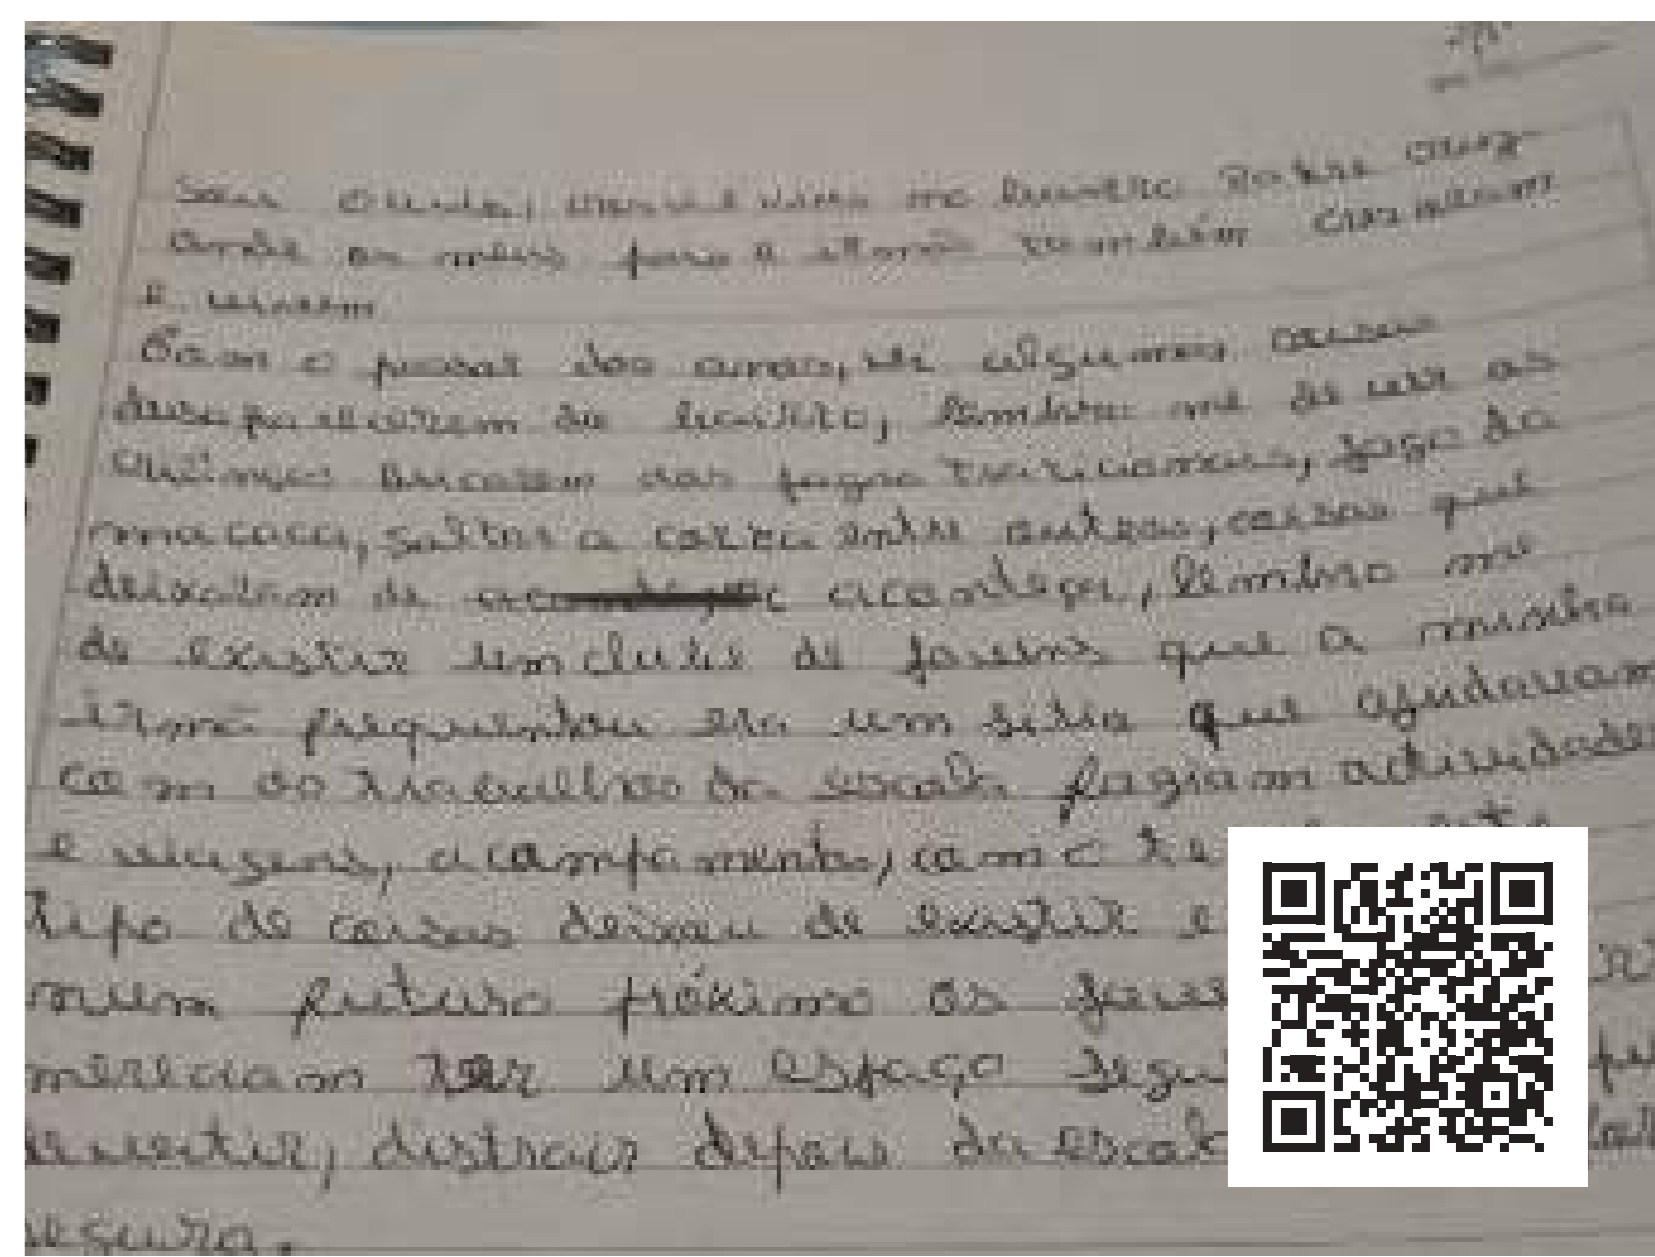 Sou
onde os meus pais e irmã também cresceram
e viveram
Com o passar dos anos, vi algumas coisas
desaparecerem do bairro, lembro me de ver as
crianças nos jogos tradicionais, jogo da
macaca, saltar a corda entre outros, coisas que
deixaram de acontecer, lembro me
de existir um clube de jovens que a minha
irmã frequentou era um sitio que ajudavam
com os trabalhos da escola faziam actividades
e viagens, acampamentos, com o
tipo de coisas deixou de existir e
num futuro próximo os
mereciam ter um espaço
divertir, distrair depois da
segura.